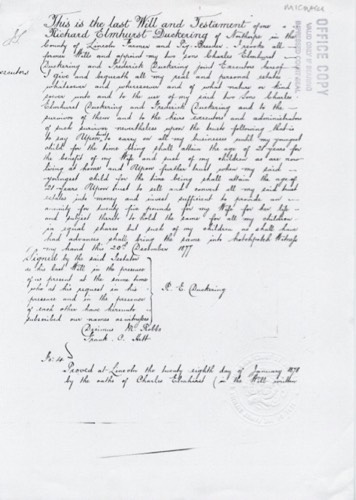 This is the last Will and Testament of me
Richard Elmhirst Duckering of Northorpe in the
County of Lincoln Farmer and Pig Breeder. I revoke all
former Wills and appoint my two sons Charles Elmhirst
Duckering and Frederick Duckering joint Executors hereof
I give and bequeath all my real and personal estate
whatsoever and wheresoever and of what nature or kind
soever unto and to the use of my said two sons Charles
Elmhirst Duckering and Frederick Duckering and to the
survivor of them and to the heirs executors and administrators
of such survivor nevertheless upon the trusts following that is
to say Upon trust to carry on all my business until my youngest
child for the time being shall attain the age of 21 years for
the benefit of my Wife and such of my children as are now
living at home and Upon further trust when my said
youngest child for the time being shall attain the age of
21 years Upon trust to sell and convert all my said real
estate into money and invest sufficient to provide an
annuity for twenty five pounds for my Wife for her life
and subject thereto to hold the same for all my children
in equal shares but such of my children as shall have
had advances shall bring the same into Hotchpotch Witness
my hand this 20th December 1877
Signed by the said Testator
as his last Will in the presence
of us present at the same time
who at his request in his
presence and in the presence
of each other have hereunto
subscribed our names as witnesses
R. E. Duckering
W. Ribbs
Frank
Proved at Lincoln the twenty eighth day of January 1878
by the oaths of Charles Elmhirst (in the Will written
Executors
OFFICE COPY